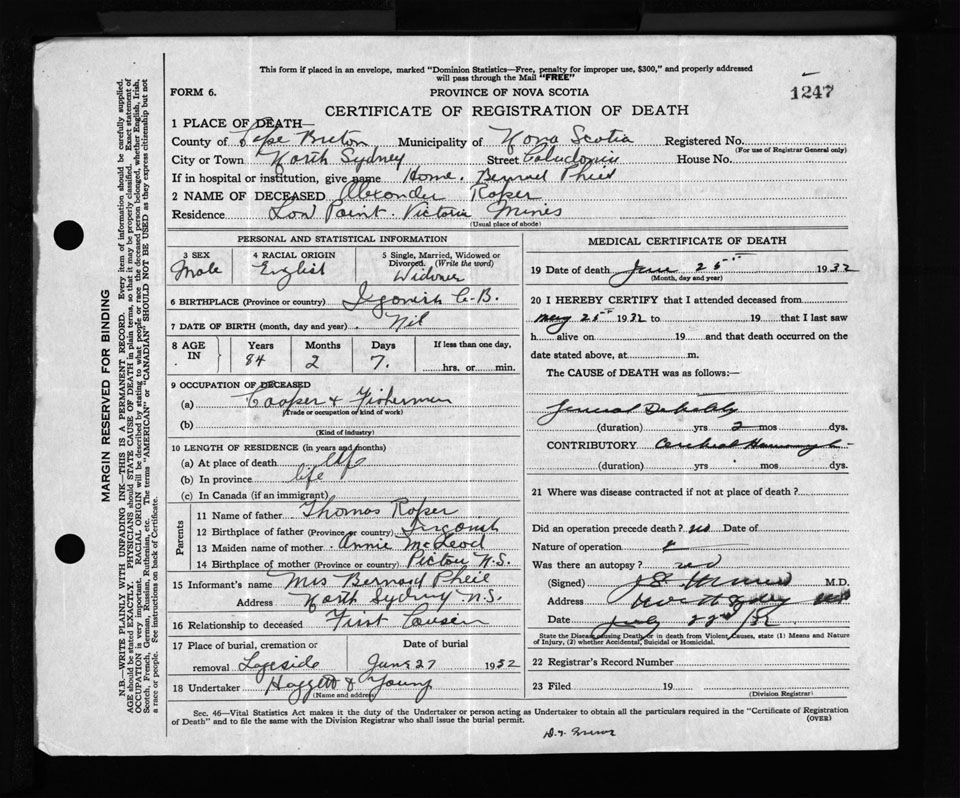 This form if placed in an envelope, marked "Dominion Statistics—Free, penalty for improper use, $300," and properly addressed
will pass through the Mail "FREE"
FORM 6.
PROVINCE OF NOVA SCOTIA
1247
CERTIFICATE OF REGISTRATION OF DEATH
1 PLACE OF DEATH—
County of Cape Breton Municipality of Nova Scotia Registered No.
(For use of Registrar General only)
City or Town North Sydney Street Caledonia House No.
If in hospital or institution, give name Home. Bernard
2 NAME OF DECEASED Alexander Roper
Residence Low Point Victoria Mines
(Usual place of abode)
PERSONAL AND STATISTICAL INFORMATION
3 SEX
Male
4 RACIAL ORIGIN
English
5 Single, Married, Widowed or Divorced. (Write the word)
Widower
6 BIRTHPLACE (Province or country) C.B.
7 DATE OF BIRTH (month, day and year) Nil
8 AGE IN
Years Months Days If less than one day,
84 2 7. hrs. or min.
9 OCCUPATION OF DECEASED
(a) Cooper & Fisherman
(Trade or occupation or kind of work)
(b)
(Kind of industry)
10 LENGTH OF RESIDENCE (in years and months)
(a) At place of death life
(b) In province life
(c) In Canada (if an immigrant)
Parents
11 Name of father Thomas Roper
12 Birthplace of father (Province or country)
13 Maiden name of mother Annie McLeod
14 Birthplace of mother (Province or country) Pictou N.S.
15 Informant's name Mrs Bernard
Address North Sydney N.S.
16 Relationship to deceased First Cousin
17 Place of burial, cremation or removal Lakeside
Date of burial
June 27 1932
18 Undertaker & Young
(Name and address)
MEDICAL CERTIFICATE OF DEATH
19 Date of death June 25th 1932
(Month, day and year)
20 I HEREBY CERTIFY that I attended deceased from
May 25th 1932 to 19 that I last saw
h alive on 19 and that death occurred on the
date stated above, at m.
The CAUSE of DEATH was as follows:—
General Debility
(duration) yrs 2 mos dys.
CONTRIBUTORY Cerebral
(duration) yrs mos dys.
21 Where was disease contracted if not at place of death?
Did an operation precede death? no Date of
Nature of operation
Was there an autopsy? no
(Signed) M.D.
Address North Sydney
Date July 22nd /32
State the Disease causing Death, or in death from Violent Causes, state (1) Means and Nature
of Injury, (2) whether Accidental, Suicidal or Homicidal.
22 Registrar's Record Number
23 Filed 19
(Division Registrar)
Sec. 46—Vital Statistics Act makes it the duty of the Undertaker or person acting as Undertaker to obtain all the particulars required in the "Certificate of Registration
of Death" and to file the same with the Division Registrar who shall issue the burial permit.
(OVER)
MARGIN RESERVED FOR BINDING
N.B.—WRITE PLAINLY WITH UNFADING INK—THIS IS A PERMANENT RECORD. Every item of information should be carefully supplied.
AGE should be stated EXACTLY. PHYSICIANS should STATE CAUSE OF DEATH in plain terms, so that it may be properly classified. Exact statement of
OCCUPATION is very important. RACIAL ORIGIN will be described by stating to what people or race the deceased person belonged, whether English, Irish,
Scotch, French, German, Russian, Ruthenian, etc. The terms "AMERICAN" or "CANADIAN" SHOULD NOT BE USED as they express citizenship but not
a race or people. See instructions on back of Certificate.